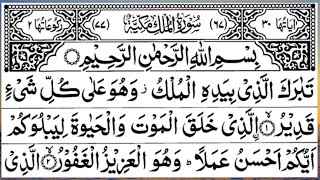 اٰیَاتُهَا ٣٠ (٦٧) سُوْرَةُ الْمُلْكِ مَكِّیَّةٌ (٧٧) رُکُوْعَاتُهَا ٢
بِسْمِ اللّٰهِ الرَّحْمٰنِ الرَّحِیْمِ
تَبٰرَكَ الَّذِیْ بِیَدِهِ الْمُلْكُ ز وَهُوَ عَلٰی كُلِّ شَیْءٍ
قَدِیْرُ ۙ﴿١﴾ ۨالَّذِیْ خَلَقَ الْمَوْتَ وَالْحَیٰوةَ لِیَبْلُوَكُمْ
اَیُّكُمْ اَحْسَنُ عَمَلًا ؕ وَهُوَ الْعَزِیْزُ الْغَفُوْرُ ۙ﴿٢﴾ الَّذِیْ